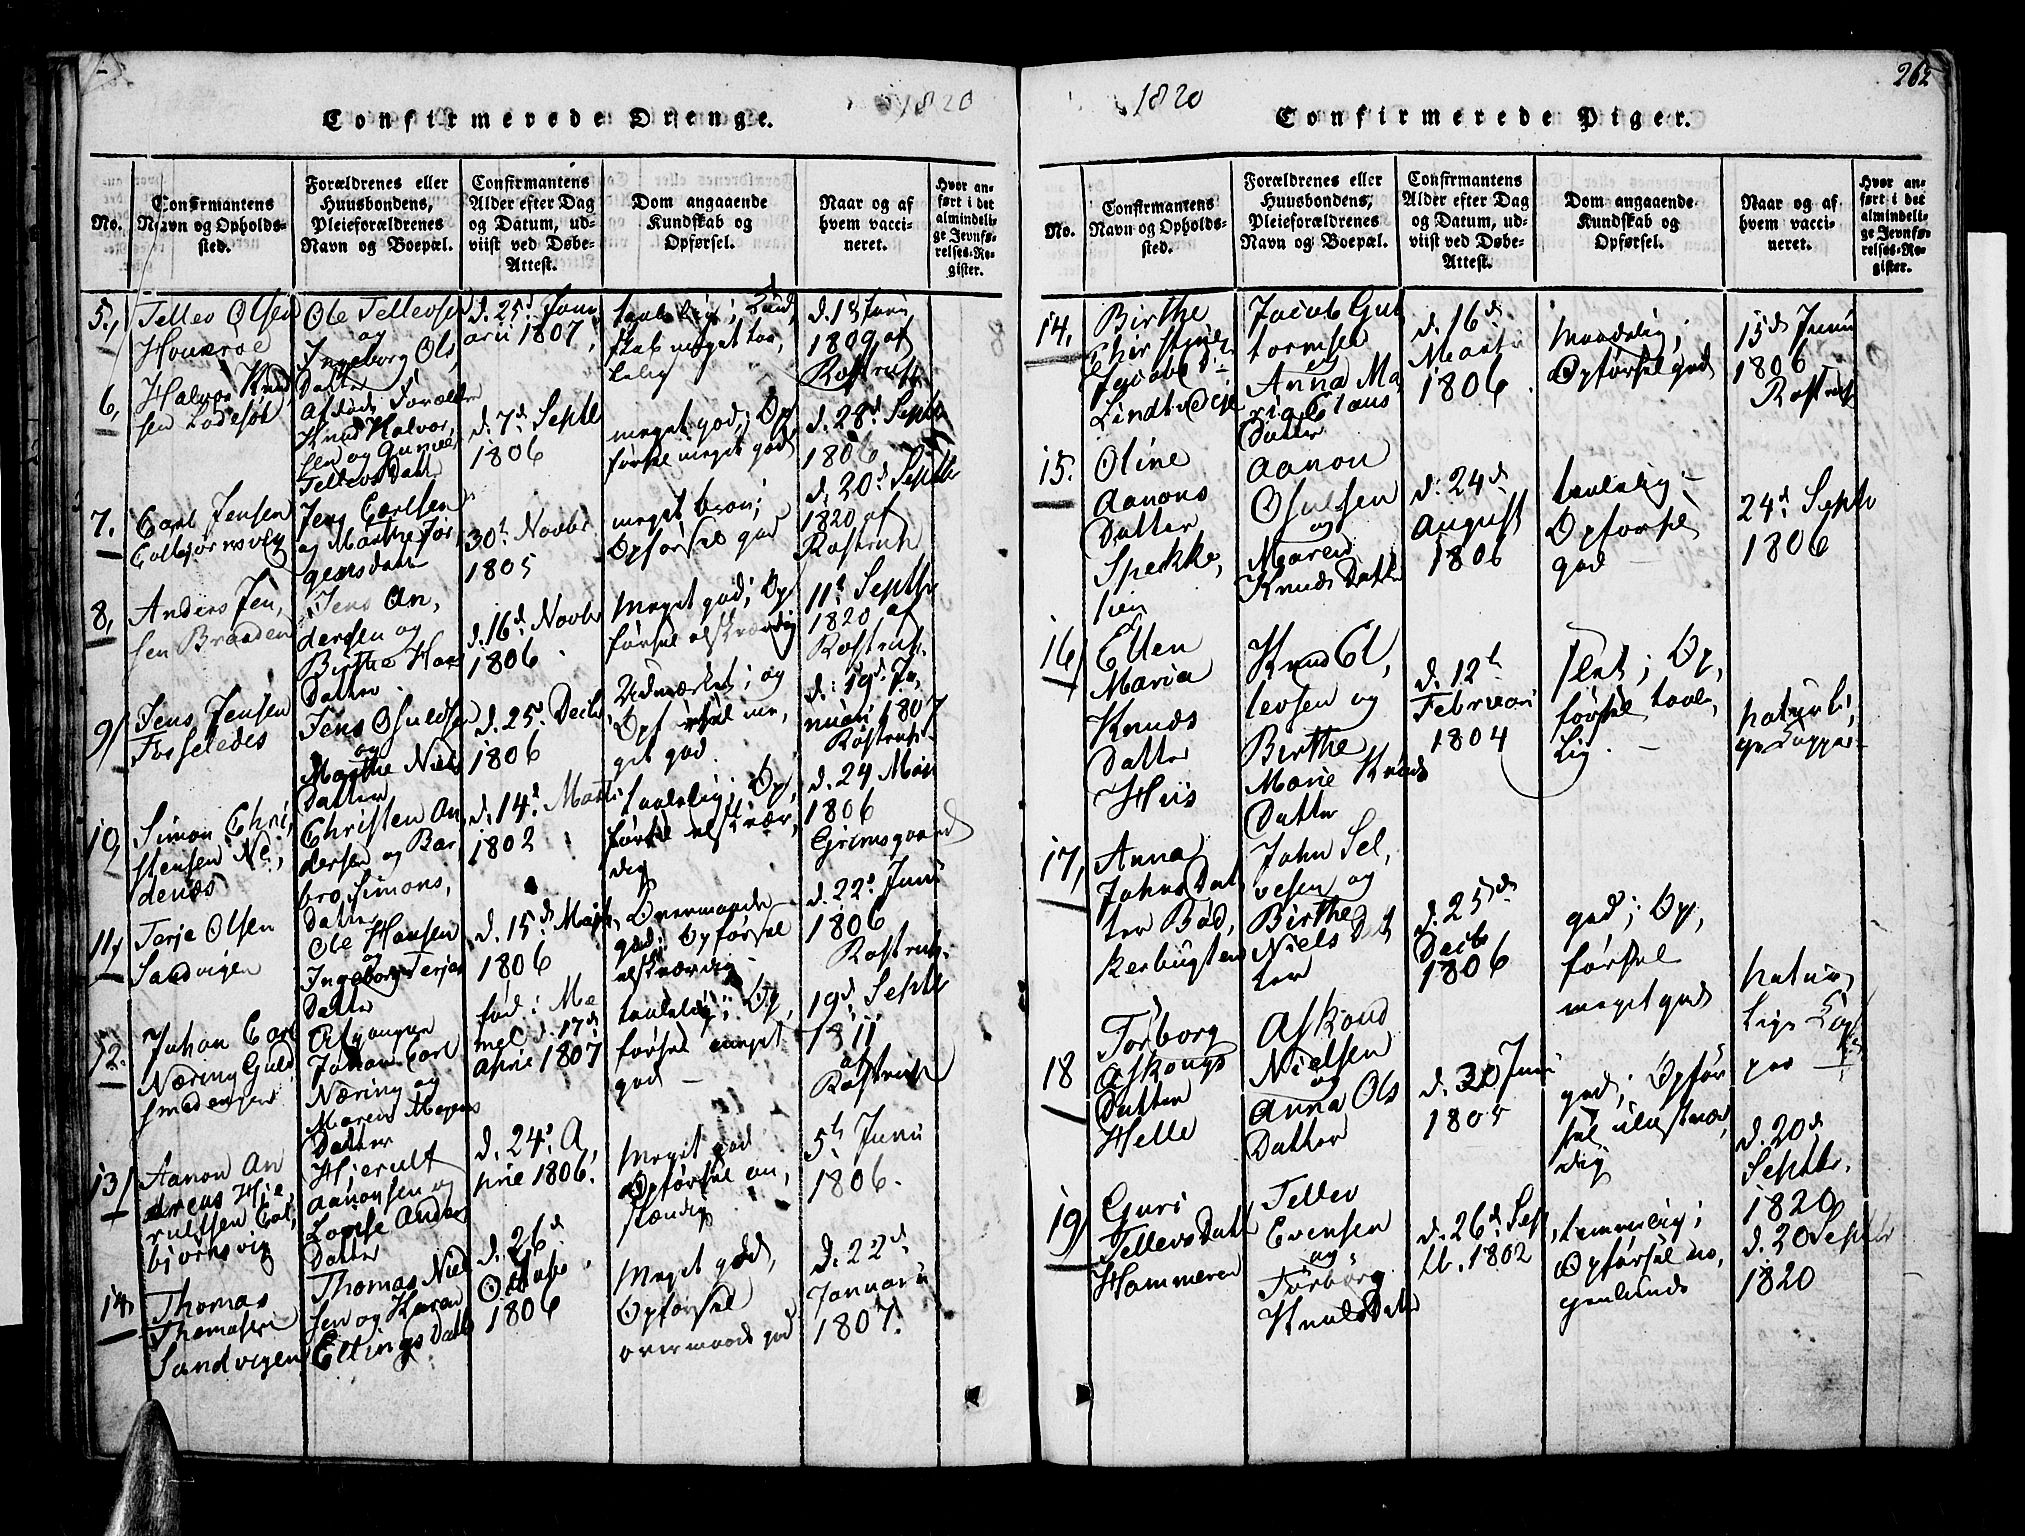 1820
Confirmerede Drenge.
No.
Confirmantens
Navn og Opholds-
sted.
Forældrenes eller
Huusbondens,
Pleieforældrenes
Navn og Boepæl.
Confirmantens
Alder efter Dag
og Datum, ud-
viist ved Døbe-
Attest.
Dom angaaende
Kundskab og
Opførsel.
Naar og af
hvem vacci-
neret.
Hvor an-
ført i det
almindeli-
ge Jevnfø-
relses-Re-
gister.
5.
Tellev Olsen
Ole Tellevsen
og
Ingeborg Ols
Datter
d. 25d Janu
arii 1807
taalelig; Kund
skab meget taa,
lelig
d. 1d Junii
1809 af
Rostrup
6,
Halvor Knud
sen
afdøde Foræld
Knud Halvor,
sen og Gunnel
Tellevs Datt
d. 7d Septb
1806
meget god; Op
førsel meget god
d. 28d Septbr
1806
7.
Carl Jensen
Colbjørnsvig
Jens Carlsen
og Marthe Jør
gensdatt
30t Novbr
1805
meget brav;
Opførsel god
d. 20d Septbr
1820 af
Rostrup
8,
Anders Jen,
sen Braaden
Jens An,
dersen og
Birthe Hans
Datter
d. 16d Novbr
1806
Meget god; Op
førsel elskværdig
11t Septbr
1820 af
Rostrup
9,
Jens Jensen
Jens Osuldsen
og
Marthe Niels
Datter
d. 25d Decbr
1806
Udmærket; og
Opførsel me,
get god.
d. 19d Ja,
nuari 1807
Rostrup
10
Simon Chri,
stensen Ne,
denæs
Christen An,
dersen og Bar
bro Simons,
Datter
d. 14d Marti
1802
taalelig; Op,
førsel elskvær,
dig
d. 24 Maii
1806
Grimsgaard
11,
Terje Olsen
Sandvigen
Ole Hansen
og
Ingeborg Terjes
Datter
d. 15d Maji
1806
Overmaade
god; Opførsel
elskværdig
d. 22d Junii
1806
Rostrup
12.
Johan Carl
Næring Guld
smedengen
Afgangne
Johan Carl
Næring og
Maren Mogens
Datter
fød i Me
mel d. 17d
April 1807
taalelig; Op,
førsel meget
god
19d Septbr
1811
af
Rostrup
13,
Aanon An
dreas Hie
rultsen Col,
biørnsvig
Hierult
Aanonsen og
Lovise Anders
Datter
d. 24d A,
pril 1806.
Meget god
Opførsel an,
stændig
5t Junii
1806.
14.
Thomas
Thomasen
Sandvigen
Thomas Niel
sen og Karen
Ellings Datt
d. 26d
Octobr
1806
Meget god,
Opførsel
overmaade god
d. 22d
Januarii
1807.
1820
262
Confirmerede Piger.
No.
Confirmantens
Navn og Opholds-
sted.
Forældrenes eller
Huusbondens,
Pleieforældrenes
Navn og Boepæl.
Confirmantens
Alder efter Dag
og Datum, ud-
viist ved Døbe-
Attest.
Dom angaaende
Kundskab og
Opførsel.
Naar og af
hvem vacci-
neret.
Hvor an-
ført i det
almindeli-
ge Jevnfø-
relses-Re-
gister.
14,
Birthe
Christine
Jacobs D
Lindtvedt
Jacob Gut
tormsen
og
Anna Ma
ria Claus
Datter
d. 16d
Martii
1806
Maadelig;
Opførsel god
15d Junii
1806
Rostrup
15.
Oline
Aanons
Datter
Spekke,
lien
Aanon
Osulsen
og
Maren
Knuds Datter
d. 24d
August
1806
taalelig
Opførsel
god
24d Septbr
1806
16,
Ellen
Maria
Knuds
Datter
Hiis
Knud El,
levsen og
Birthe
Marie Knuds
Datter
d. 12t
Februari
1804
slet; Op,
førsel taale,
lig.
naturli,
ge Kopper
17,
Anna
Johns Dat
ter Bød,
kerbugten
John Sel,
vesen og
Birthe
Niels Dat
ter
d. 25d
Decbr
1806
god; Op,
førsel
meget god
natur,
lige Kop
per
18
Torborg
Askongs
Datter
Helle
Askoud
Nielsen
og
Anna Ols
Datter
d. 30 Juni
1805
god; Opfør
sel ulastvær,
dig
d. 20d
Septbr.
1820
19,
Guri
Tellevs Datt
Hammeren
Tellev
Evensen
og
Torborg
Knuds Datter
d. 26d Sep
tb. 1802
temmelig;
Opførsel no,
genlunde
d. 20 Septbr
1820